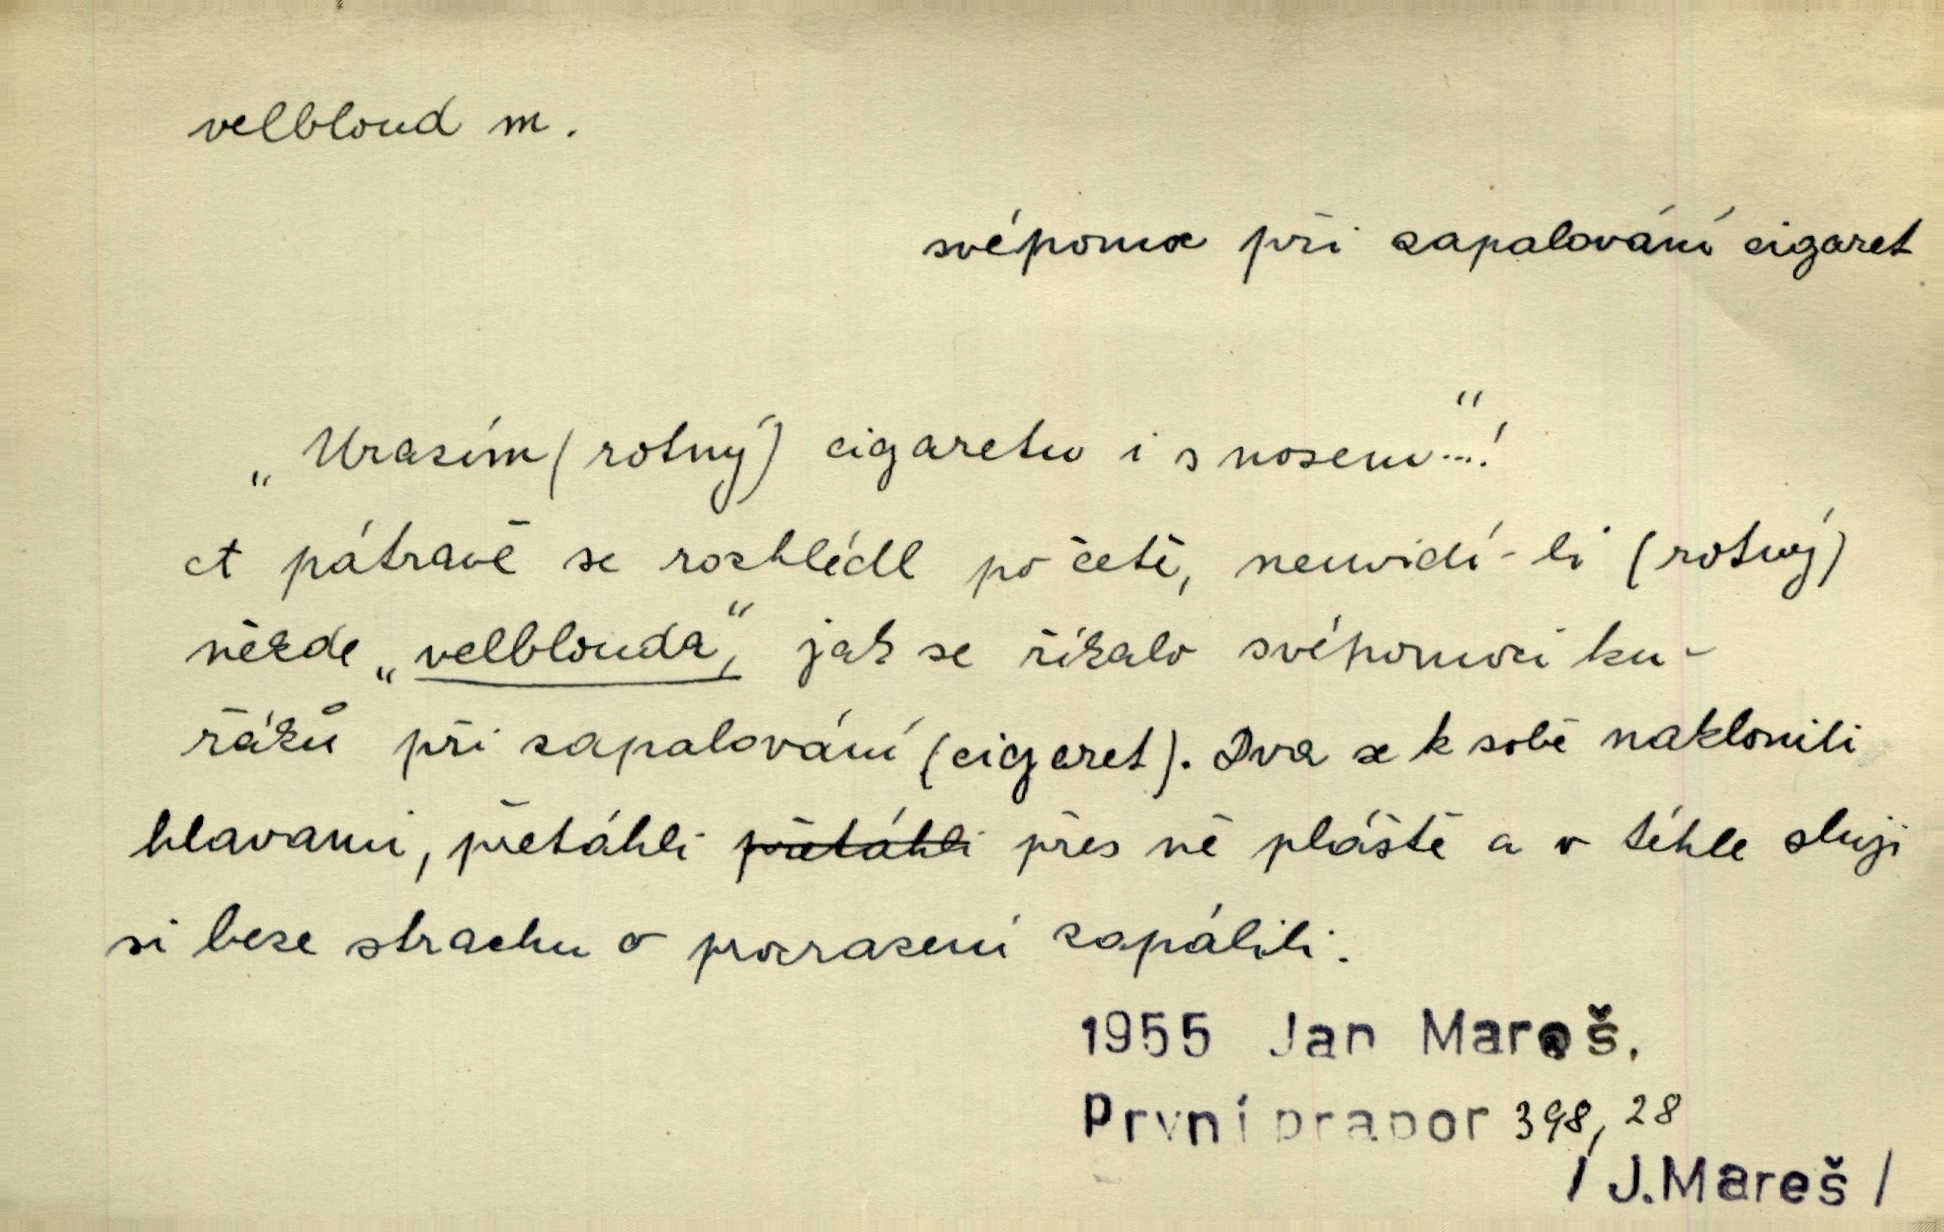 velbloud m.
svépomoc při zapalování cigaret
„Urazím (rotný) cigaretu i s nosem...!“
A pátravě se rozhlédl po četě, neuvidí-li (rotný)
někde „velblouda“, jak se říkalo svépomoci ku-
řáků při zapalování (cigaret). Dva se k sobě naklonili
hlavami, přetáhli ~~přetáhli~~ přes ně pláště a v téhle sluji
si beze strachu o prozrazení zapálili.
1955 Jan Mareš.
První prapor 398, 28
/ J.Mareš /